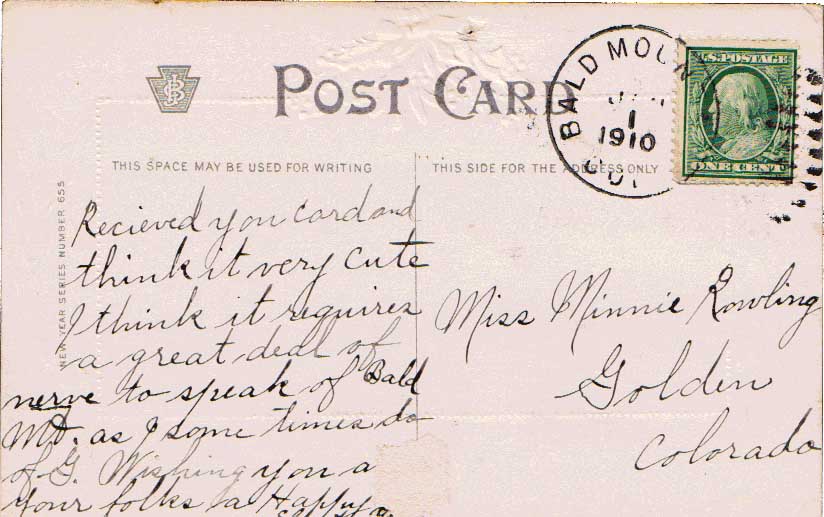 POST CARD
THIS SPACE MAY BE USED FOR WRITING
THIS SIDE FOR THE ADDRESS ONLY
NEW YEAR SERIES NUMBER 655
BALD MOUN
1
1910
U.S. POSTAGE
ONE CENT
Recieved you card and
think it very cute
I think it requires
a great deal of
nerve to speak of Bald
Mt. as I some times do
of G. Wishing you a
your folks a Happy
Miss Minnie Rowling
Golden
Colorado